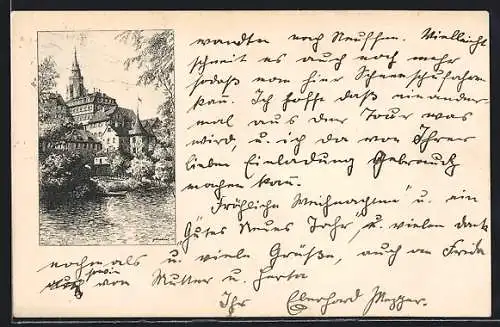 wandte nach Neuffen. Vielleicht
schneit es auch noch mehr
sodaß von hier Schneeschufahren
kan. Ich hoffe daß ein ander-
mal aus der Tour was
wird, u. ich da von Ihrer
lieben Einladung Gebrauch
machen kann.
Fröhliche Weihnachten" u. ein
"Gutes Neues Jahr" u. vielen dank
nochmals u. viele Grüße, auch an Frida
sowie
von Mutter u. Herta
Ihr Eberhard